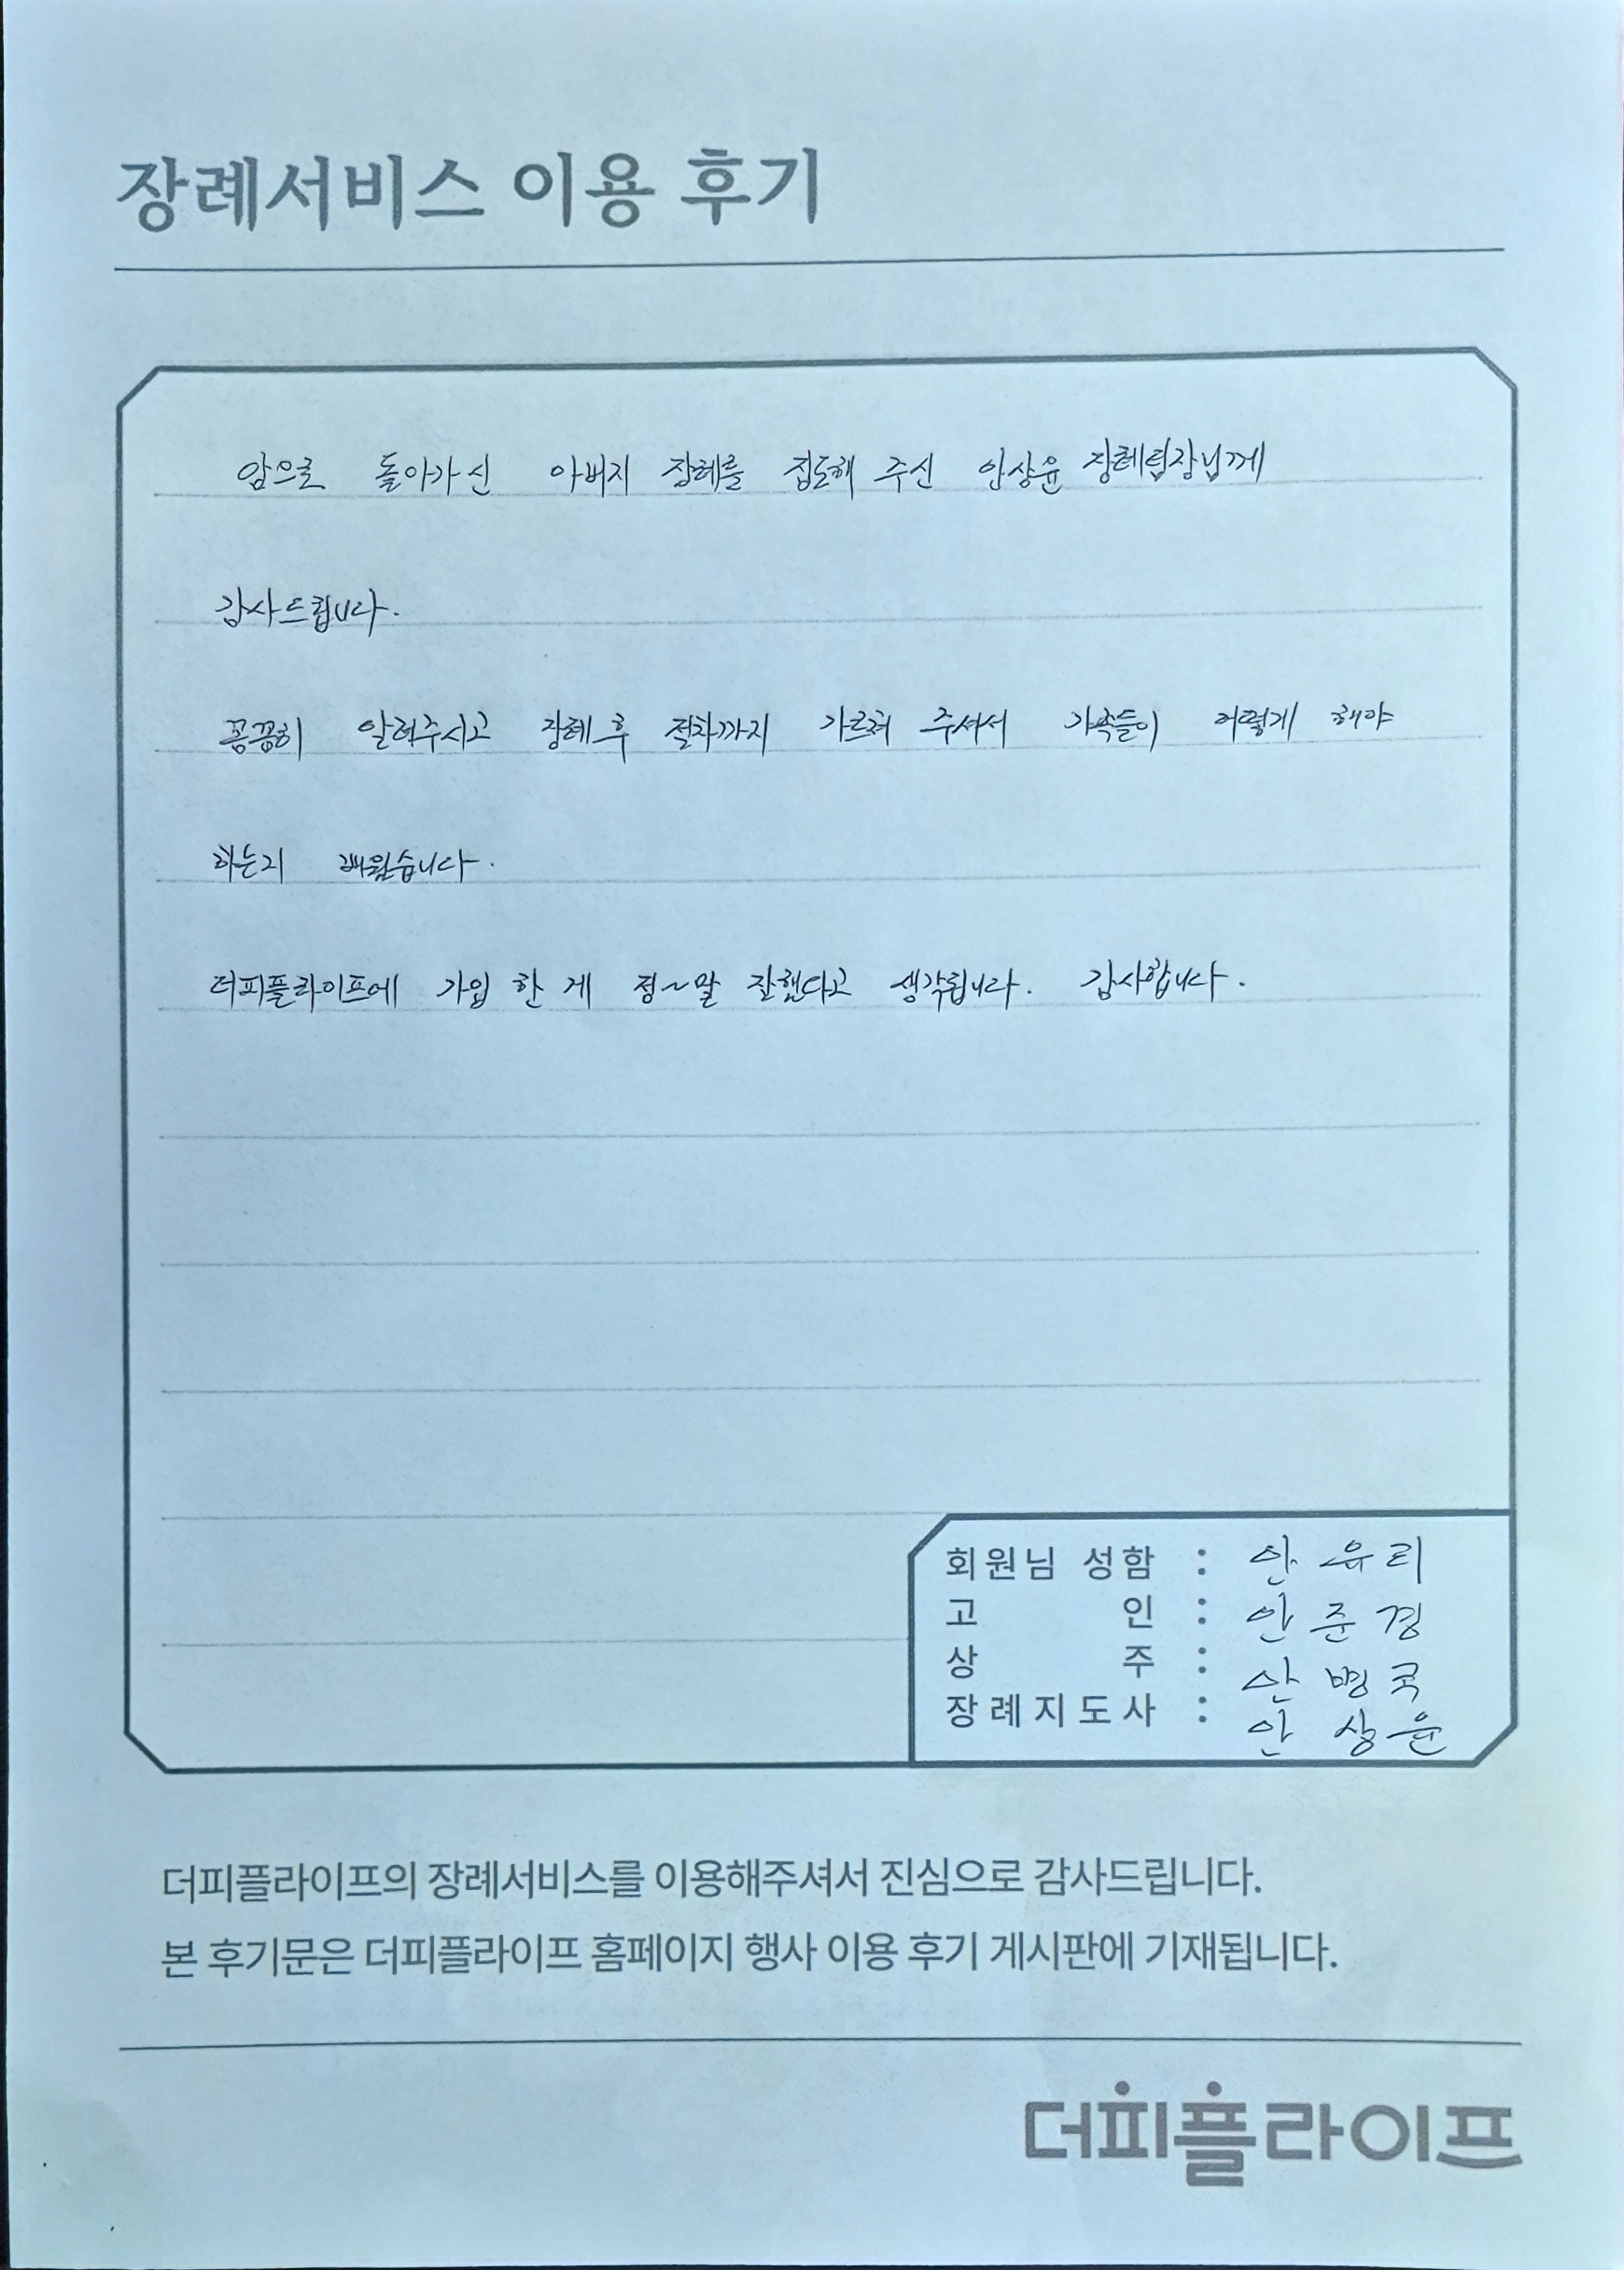 장례서비스 이용 후기
암으로 돌아가신 아버지 장례를 집도해 주신 안상윤 장례팀장님께
감사드립니다.
꼼꼼히 알려주시고 장례 후 절차까지 가르쳐 주셔서 가족들이 어떻게 해야
하는지 배웠습니다.
더피플라이프에 가입 한 게 정~말 잘했다고 생각됩니다. 감사합니다.
회원님 성함 : 안유리
고 인 : 안준경
상 주 : 안병국
장례지도사 : 안상윤
더피플라이프의 장례서비스를 이용해주셔서 진심으로 감사드립니다.
본 후기문은 더피플라이프 홈페이지 행사 이용 후기 게시판에 기재됩니다.
더피플라이프